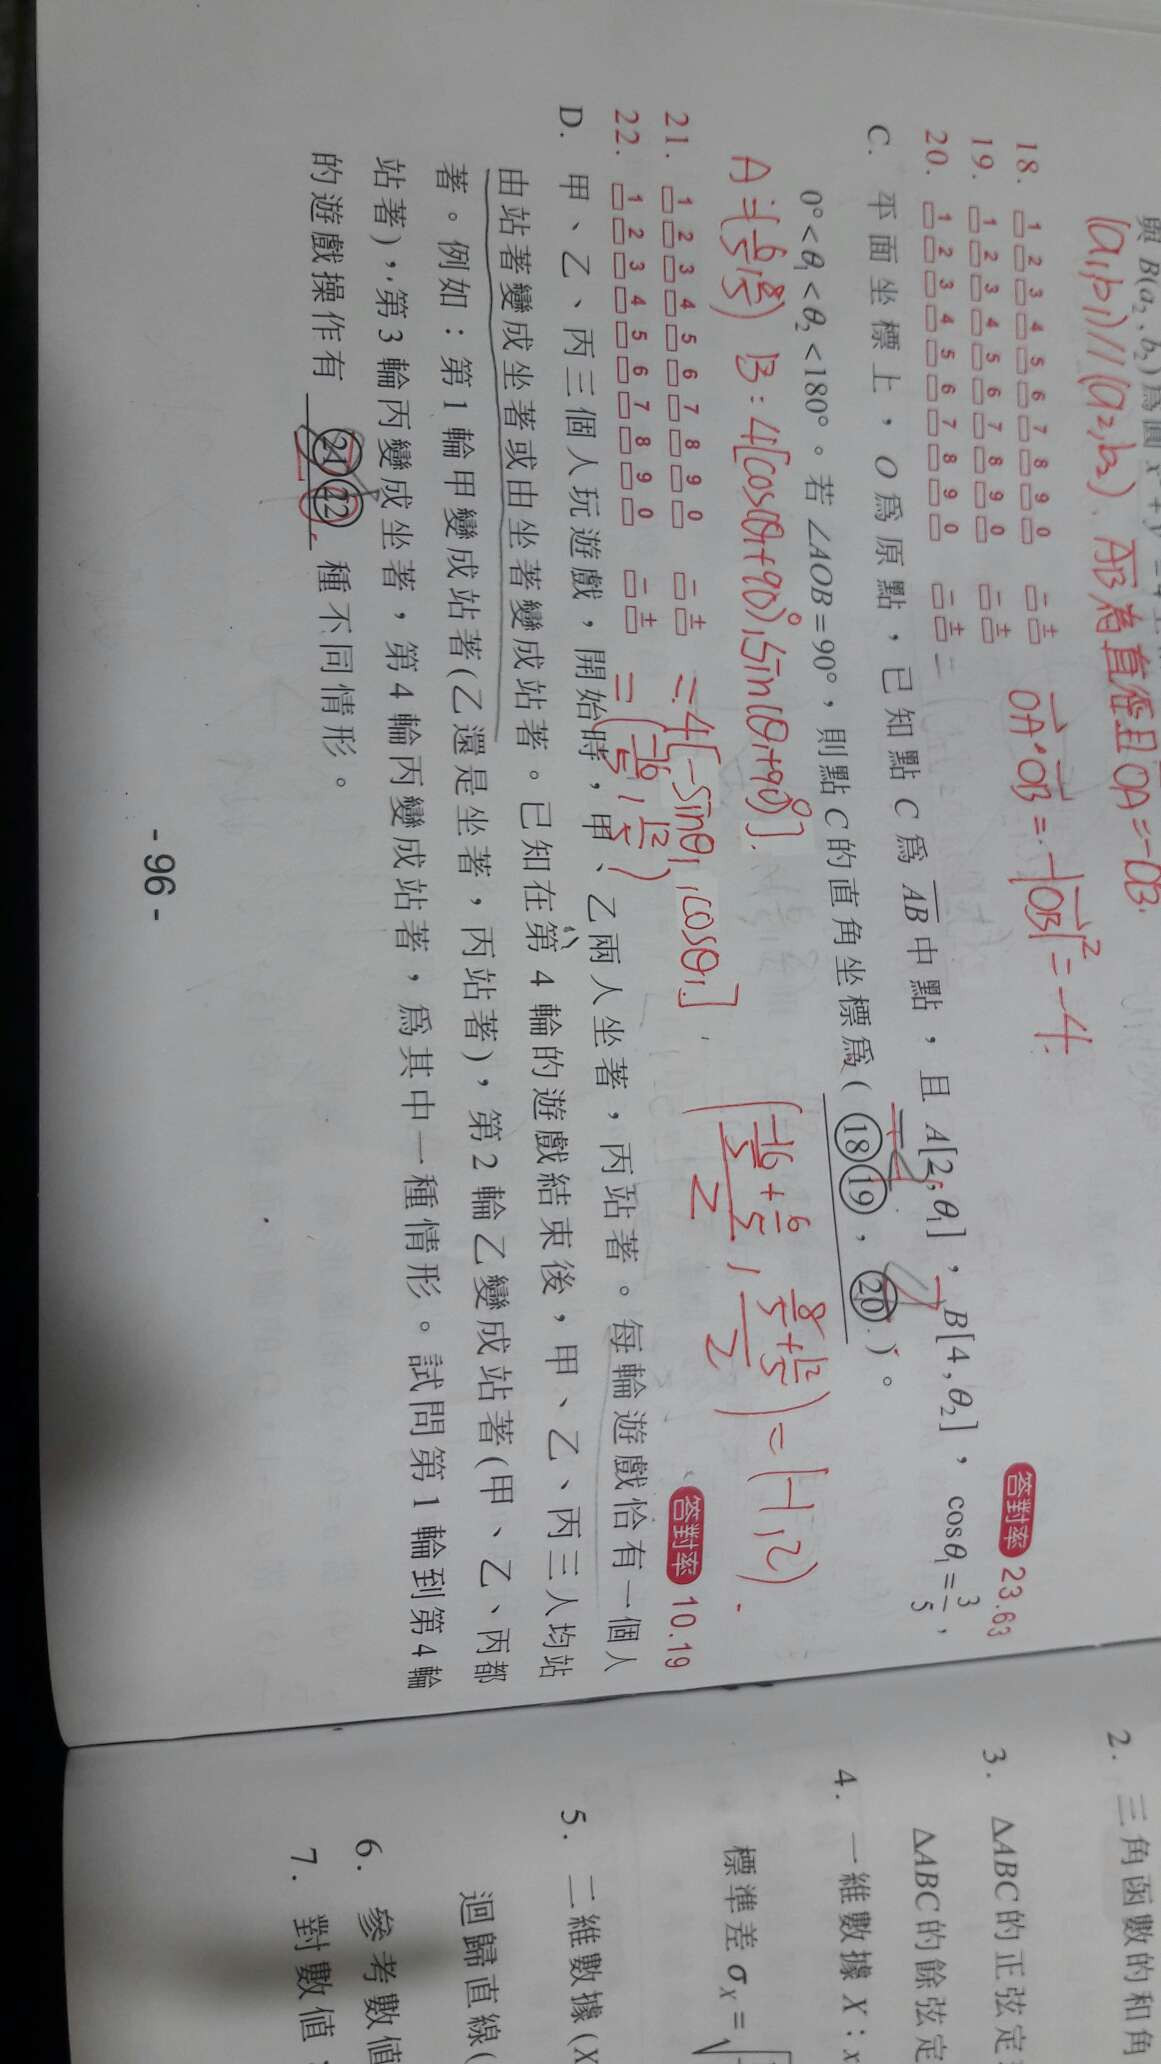 與 B(a₂, b₂) 為圓 x² + y² = 4 上
(a₁,b₁)//(a₂,b₂)、AB為直徑且OA=-OB.
OA·OB=-|OB|²=-4.
18. 1 2 3 4 5 6 7 8 9 0 - ±
19. 1 2 3 4 5 6 7 8 9 0 - ±
20. 1 2 3 4 5 6 7 8 9 0 - ±
答對率 23.63
C. 平面坐標上，O為原點，已知點C為 AB 中點，且 A[2, θ₁]，B[4, θ₂]，cosθ₁ = 3/5，
0° < θ₁ < θ₂ < 180°。若∠AOB = 90°，則點C的直角坐標為( ⑱⑲ , ⑳ )。
A=(6/5, 8/5) B:4[cos(θ₁+90°), sin(θ₁+90°)].
=4[-sinθ₁, cosθ₁]
=(-16/5, 12/5)
((-16/5+6/5)/2, (8/5+12/5)/2) = (-1,2).
答對率 10.19
21. 1 2 3 4 5 6 7 8 9 0 - ±
22. 1 2 3 4 5 6 7 8 9 0 - ±
D. 甲、乙、丙三個人玩遊戲，開始時，甲、乙兩人坐著，丙站著。每輪遊戲恰有一個人
由站著變成坐著或由坐著變成站著。已知在第4輪的遊戲結束後，甲、乙、丙三人均站
著。例如：第1輪甲變成站著(乙還是坐著，丙站著)，第2輪乙變成站著(甲、乙、丙都
站著)，第3輪丙變成坐著，第4輪丙變成站著，為其中一種情形。試問第1輪到第4輪
的遊戲操作有 ㉑㉒ 種不同情形。
- 96 -
2. 三角函數的和角
3. △ABC的正弦定
△ABC的餘弦定
4. 一維數據 X：x
標準差 σX = √
5. 二維數據 (X
迴歸直線(
6. 參考數值
7. 對數值